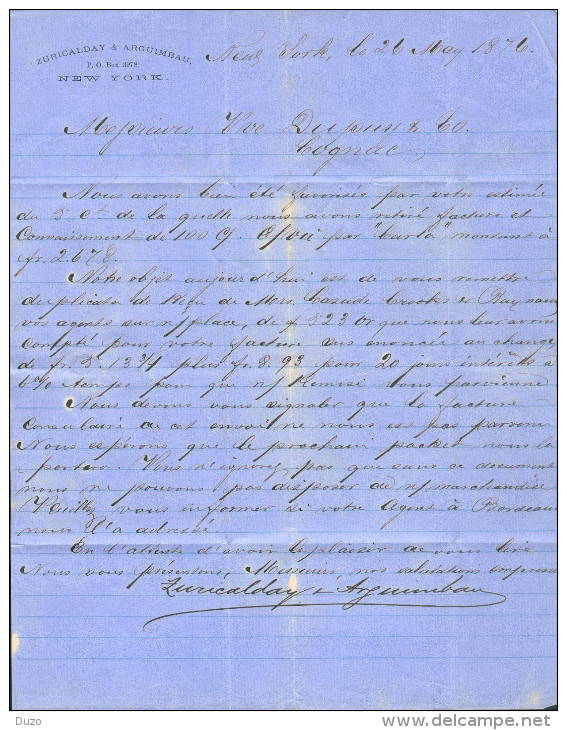 ZURICALDAY & ARGUIMBAU,
P. O. Box
NEW YORK.
New York, le 26 May 1876.
Messieurs Vve Dupuy & Co.
Cognac,
Nous avons bien été favorisés par votre estimée
du 5 ct de la quelle nous avons retiré facture et
Connaissement de 100 c/ par "Carla" montant à
fr. 2.678.
Notre objet aujourd'hui est de vous remettre
duplicata de Reçu de Mrs. Crookes et Raynaud
vos agents sur n/place, de $ 523 Or que nous leur avons
compté pour votre facture sus enoncée au change
de fr. 5.13 3/4 plus fr. 8.93 pour 20 jours intérêts à
6% temps pour que n/ Remise vous parvienne
Nous devons vous signaler que la facture
Consulaire de cet envoi ne nous est pas parvenu
Nous espérons que le prochain packet nous la
portera. Vous n'ignorez pas que sans ce document
nous ne pouvons pas disposer de n/ marchandise
Veuillez vous informer si votre Agent à Bordeaux
nous l'a adressé.
En l'attente d'avoir le plaisir de vous lire
Nous vous présentons, Messieurs, nos salutations empressées
Zuricalday & Arguimbau
Duzo
www.delcampe.net